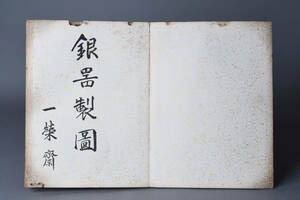 銀器製圖
一榮齋